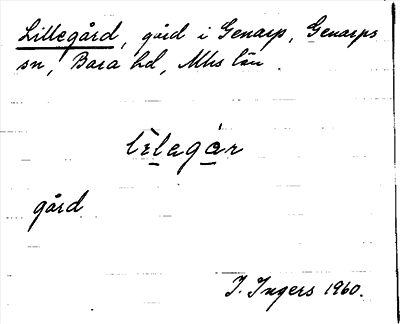 Lillegård, gård i Genarp, Genarps
sn, Bara hd, Mhs län.
lìlagár
gård
I. Ingers 1960.